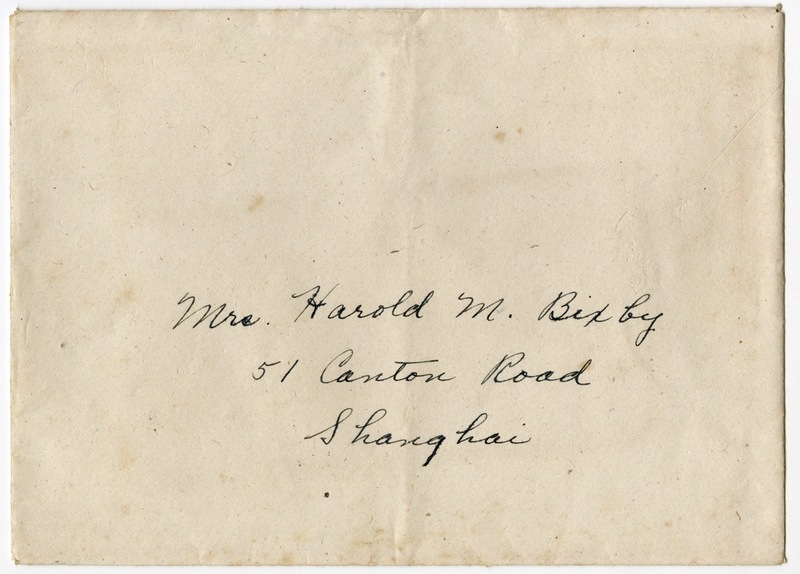 Mrs. Harold M. Bixby
51 Canton Road
Shanghai